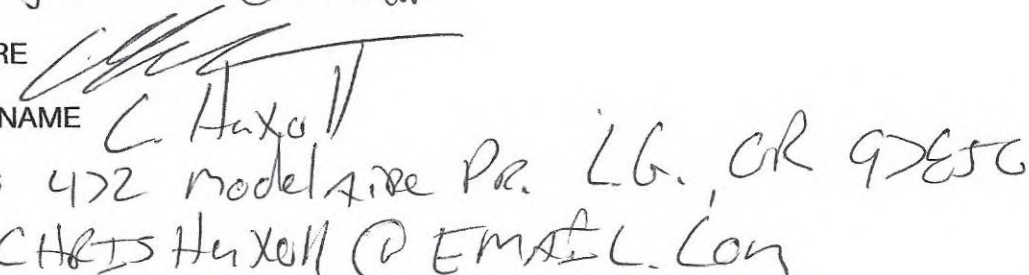 RE
NAME C. Huxoll
472 Modelaire Dr. L.G., OR 97850
CHRISHuxoll @ EMAIL.Com